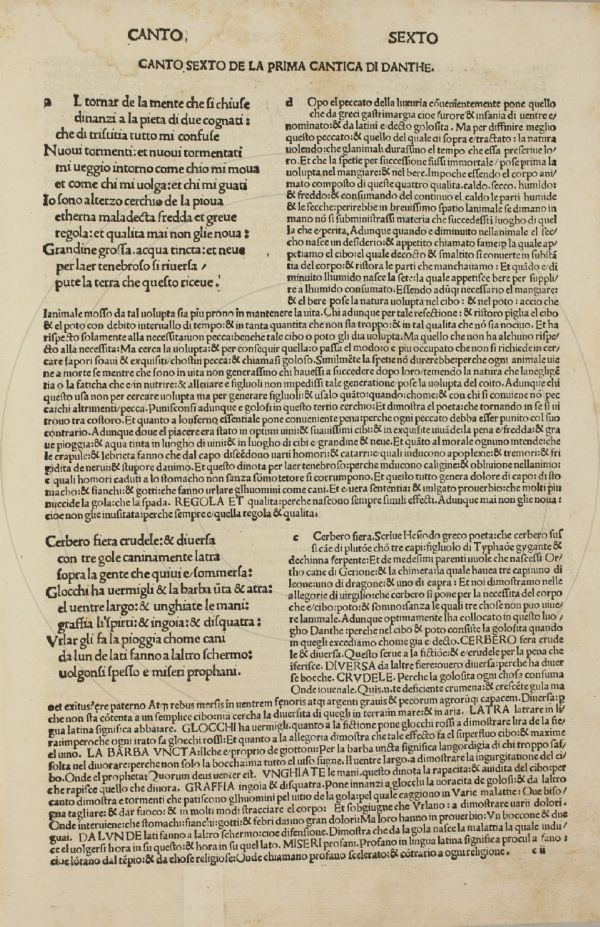 CANTO,
SEXTO
CANTO SEXTO DE LA PRIMA CANTICA DI DANTHE.
a L tornar de la mente che si chiuse
dinanzi a la pieta di due cognati:
che di tristitia tutto mi confuse
Nuoui tormenti: et nuoui tormentati
mi ueggio intorno come chio mi moua
et come chi mi uolga: et chi mi guati
Io sono al terzo cerchio de la pioua
etherna maladecta fredda et greue
regola: et qualita mai non glie noua:
Grandine grossa. acqua tincta: et neue
per laer tenebroso si riuersa /
pute la terra che questo riceue.
d Opo el peccato della luxuria cōuenientemente pone quello
che da greci gastrimargia cioe furore & insania di uentre e/
nominato: & da latini e decto golosita. Ma per diffinire meglio
questo peccato: & quello del quale di sopra e tractato: la natura
uolendo: che glanimali durassino el tempo che essa prescriue lo/
ro. Et che la spetie per successione fussi immortale / pose prima la
uolupta nel mangiare: & nel bere. Impoche essendo el corpo ani/
mato composto di queste quattro qualita. caldo. secco. humido:
& freddo: & consumando del continuo el caldo le parti humide
& le secche: perirebbe in breuissimo spatio lanimale se dimano in
mano nō si subministrassi materia che succedessi i luogho di quel
la che e perita, Adunque quando e diminuito nellanimale el sec/
cho nasce un desiderio: & appetito chiamato fame: p la quale ap/
petiamo el cibo: el quale decocto & smaltito si conuerte in substā
tia del corpo: & ristora le parti che manchauamo: Et quādo e di
minuito lhumido nasce la sete: la quale appetisce bere per supplí/
re a lhumido consumato. Essendo adūq; necessario el mangiare:
& el bere pose la natura uolupta nel cibo: & nel poto: accio che
lanimale mosso da tal uolupta sia piu prono in mantenere la uita. Chi adunque per tale resectione: & ristoro piglia el cibo
& el poto con debito interuallo di tempo: & in tanta quantita che non sia troppo: & in tal qualita che nō sia nociuo. Et ha
rispecto solamente alla necessita: non pecca: benche tale cibo o poto gli dia uolupta. Ma quello che non ha alchuno rispe/
cto alla necessita: Ma cerca la uolupta: & per conseguir quella: o passa el modo: o e piu occupato che non si richiede in cer/
care sapori soaui & exquisiti / choshui pecca: & chiamasi goloso. Similmēte la spetie nō durerebbe: perche ogni animale uie
ne a morte se mentre che sono in uita non generassino chi hauessi a succedere dopo loro / temendo la natura che la neglige/
tia o la faticha che e in nutrire: & alleuare e figluoli non impedissi tale generatione pose la uolupta del coito. Adunque chi
questo usa non per cercare uolupta ma per generare figluoli: & usalo quāto: quando: chome: & con chi si conuiene nō pec
ca: ichi altrimenti / pecca. Puniscōnsi adunque e golosi in questo tertio cerchio: Et dimostra el poeta: che tornando in se si ui
trouo tra costoro. Et quanto a lonferno essentiale pone conueniente pena: perche ogni peccato debba esser punito col suo
contrario. Adunque doue el piacere era stato in optimi uini: & suauissimi cibi: & in exquisite uiuāde: la pena e fredda: & gra
ue pioggia: & aqua tinta in luogho di uini: & in luogho di cibi e grandine & neue. Et quāto al morale ognuno intende: che
le crapule: & lebrieta fanno che dal capo discēdono uarii homori: & catarri: e quali inducono apoplexie: & tremori: & fri
gidita de nerui: & stupore danimo. Et questo dinota per laer tenebroso: perche inducono caligine: & obliuione nellanimo:
e quali homori caduti a lo stomacho non sanza sōmo tetore si corrumpono. Et quello tutto genera dolore di capo: di sto
macho: & fianchi: & gotti: che fanno urlare glhuomini come cani. Et e uera sententia: & uulgato prouerbio: che molti piu
nuccide la gola: che la spada. REGOLA ET qualita: perche nascono sempre simili effecti. Adunque mai non glie noua:
cioe non glie inusitata: perche sempre e quella regola & qualita.
Cerbero fiera crudele: & diuersa
con tre gole caninamente latra
sopra la gente che quiui e sommersa:
Glocchi ha uermigli & la barba ūta & atra:
el uentre largo: & unghiate le mani:
graffia li spirti: & ingoia: & disquatra:
Vrlar gli fa la pioggia chome cani
da lun de lati fanno a laltro schermo:
uolgonsi spesso e miseri prophani.
c Cerbero fiera. Scriue Hesiodo greco poeta: che cerbero fus
si cāe di plutōe chō tre capi: figluolo di Typhaōe gygante &
dechinna serpente: Et de medesimi parenti uuole che nascessi Or/
tho cane di Gerione: & la chimera: la quale hauea tre capi: uno di
leone: uno di dragone: & uno di capra: Et noi dimostramo nelle
allegorie di uirgilio: che cerbero si pone per la necessita del corpo
che e cibo: poto: & somno: sanza le quali tre chose non puo uiue/
re lanimale. Adunque optimamente lha collocato in questo luo/
gho Danthe: perche nel cibo & poto consiste la golosita quando
in quegli excediamo chome gia e decto. CERBERO fera crude
le & diuersa. Questo serue a la fictiōe: & e crudele per la pena che
iferisce. DIVERSA da laltre fiere: ouero diuersa: perche ha diuer
se bocche. CRVDELE. Perche la golosita ogni chosa consuma
Onde iouenale. Quis. n. te deficiente crumena: & crescēte gula ma
net exitus? ere paterno Atq; rebus mersis in uentrem fenoris atq; argenti grauis & pecorum agrorūq; capacem. Diuersa: p
che non sta cōtenta a un semplice cibo: ma cercha la diuersita di quegli in terra: in mare: & in aria. LATRA latrare in li/
gua latina significa abbaiare. GLOCCHI ha uermigli. quanto a la fictione pone glocchi rossi a dimostrare lira de la fie/
ra: imperoche ogni irato fa glocchi rossi: Et quanto a la allegoria dimostra che tale effecto fa el superfluo cibo: & maxime
el uino. LA BARBA VNCTA: ilche e proprio de giottoni: Per la barba uncta significa langordigia di chi troppo saf/
folta nel diuorare: perche non solo la boccha: ma tutto el uiso sugne. Il uentre largo. a dimostrare la ingurgitatione del ci/
bo. Onde el propheta: Quorum deus uenter est. VNGHIATE le mani. questo dinota la rapacita: & auidita del cibo: per
che rapisce quello che diuora. GRAFFIA ingoia & disquatra. Pone innanzi a glocchi la uoracita de golosi: & da laltro
canto dimostra e tormenti che patiscono glhuomini pel uitio de la gola: pel quale caggiono in Varie malattie: Onde biso/
gna tagliare: & dar fuoco: & in molti modi stracciare el corpo: Et sobgiugne che Vrlano: a dimostrare uarii dolori.
Onde interuiene: che stomachi: fianchi: gotti: & febri danno gran dolori: Ma loro hanno in prouerbio: Vn boccone & due
guai. DA LVN DE lati fanno a laltro schermo: cioe difensione. Dimostra che da la gola nasce la malattia la quale indu/
ce el uolgersi hora in su questo: & hora in su quel lato. MISERI profani. Profano in lingua latina significa procul a fano:
cioe lōtano dal tēpio: & da chose religiose: Onde chiamano profano scelerato: & cōtrario a ogni religione.
c ii